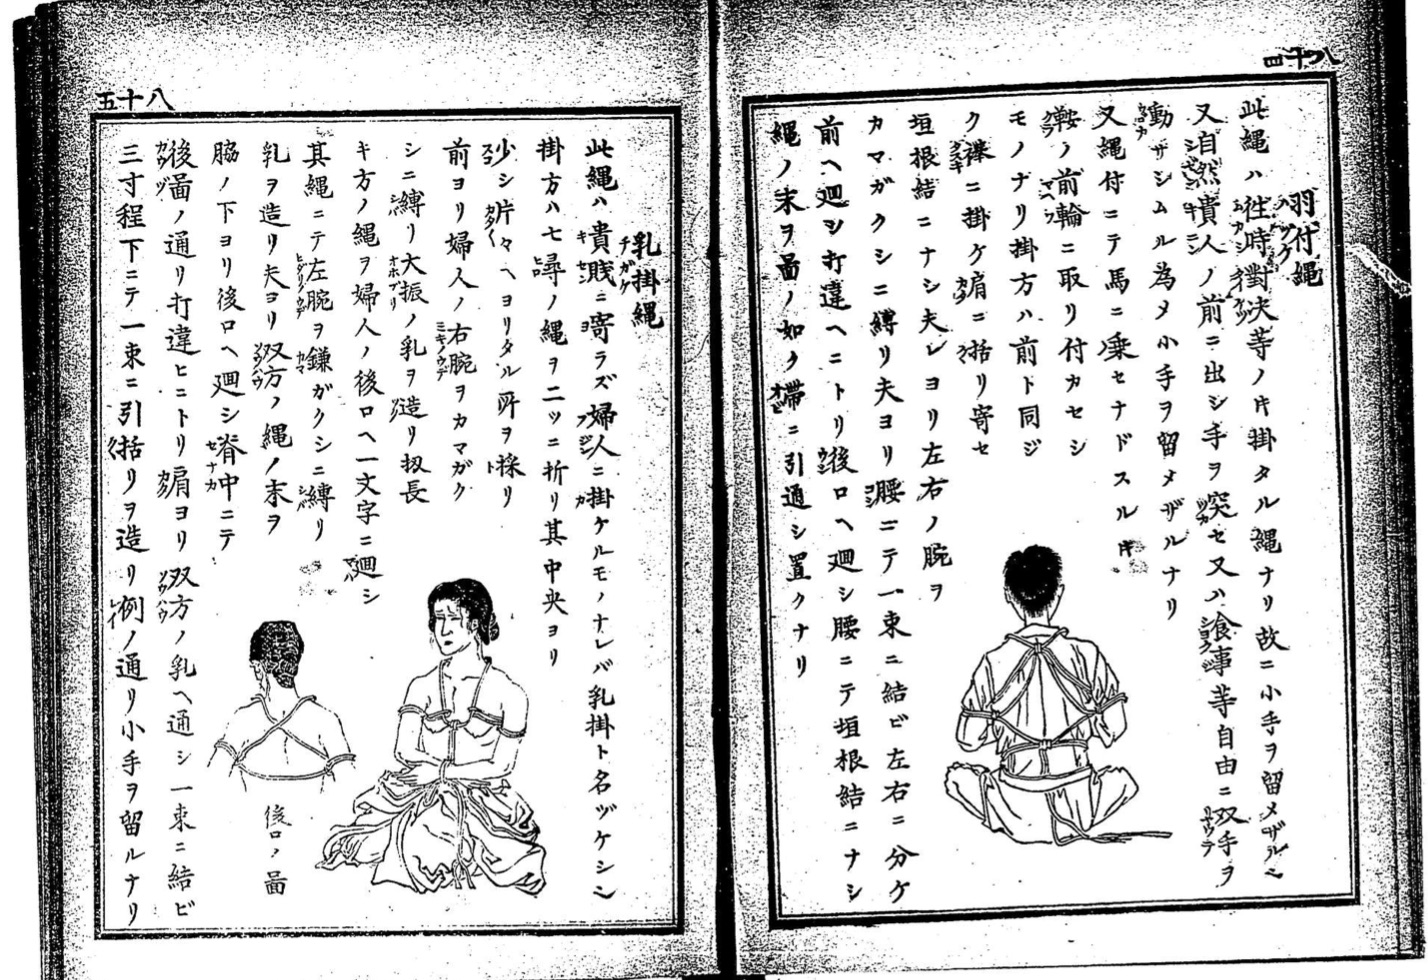 八十四
羽付縄
此縄ハ往時對决等ノ片掛タル縄ナリ故ニ小手ヲ留メザルハ
又自然貴人ノ前ニ出シ手ヲ突セ又ハ飡事等自由ニ双手ヲ
動ザシムル為メ小手ヲ留メザルナリ
又縄付ニテ馬ニ乗セナドスル片
鞍ノ前輪ニ取リ付カセシ
モノナリ掛方ハ前ト同ジ
ク襷ニ掛ケ肩ニ括リ寄セ
垣根結ニナシ夫レヨリ左右ノ腕ヲ
カマガクシニ縛リ夫ヨリ腰ニテ一束ニ結ビ左右ニ分ケ
前ヘ廻シ打違ヘニトリ後ロヘ廻シ腰ニテ垣根結ニナシ
縄ノ末ヲ畐ノ如ク帯ニ引通シ置クナリ
八十五
乳掛縄
此縄ハ貴賎ニ寄ラズ婦人ニ掛ケルモノナレバ乳掛ト名ヅケシハ
掛方ハ七尋ノ縄ヲ二ッニ折リ其中央ヨリ
少シ片々ヘヨリタル所ヲ採リ
前ヨリ婦人ノ右腕ヲカマガク
シニ縛リ大振ノ乳ヲ造リ扨長
キ方ノ縄ヲ婦人ノ後ロヘ一文字ニ廻シ
其縄ニテ左腕ヲ鎌ガクシニ縛リ
乳ヲ造リ夫ヨリ双方ノ縄ノ末ヲ
脇ノ下ヨリ後ロヘ廻シ脊中ニテ
後畐ノ通リ打違ヒニトリ肩ヨリ双方ノ乳ヘ通シ一束ニ結ビ
三寸程下ニテ一束ニ引括リヲ造リ例ノ通リ小手ヲ留ルナリ
後ロノ畐